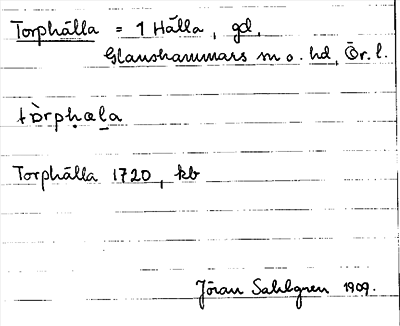 Torphälla = 1 Hälla, gd,
Glanshammars sn o. hd, Ör. l.
tòrphæla
Torphälla 1720, kb
Jöran Sahlgren 1909.